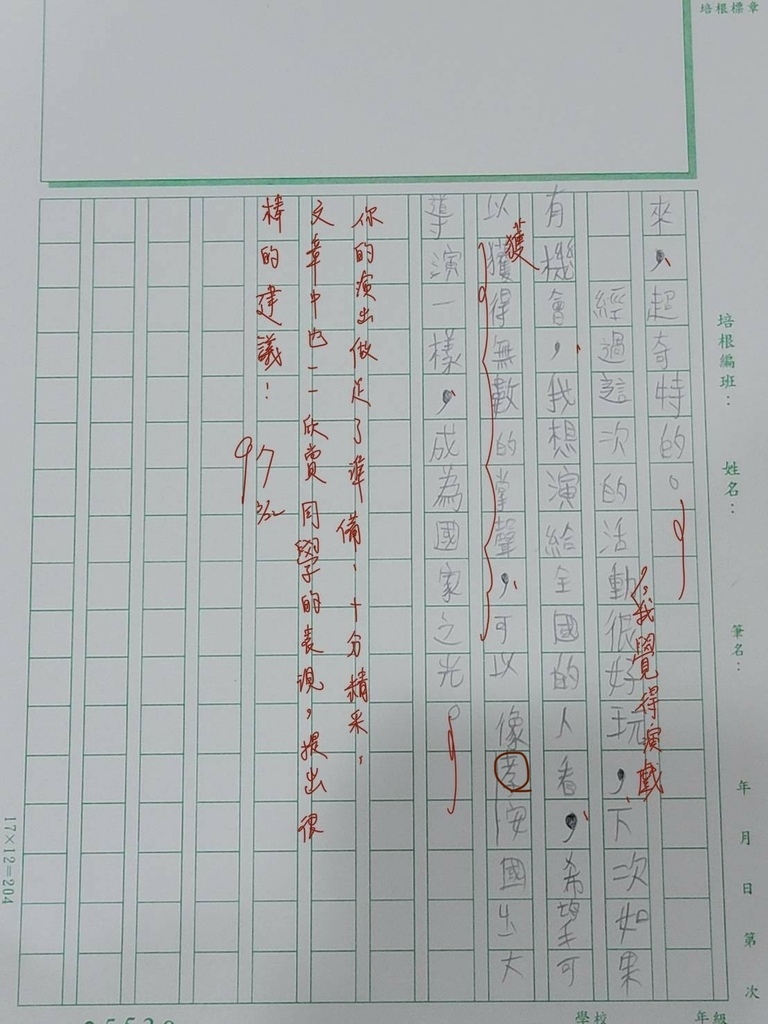 培根標章
培根編班：
姓名：
筆名：
年 月 日 第 次
來，超奇特的。
經過這次的活動很好玩，下次如果
，我覺得演戲
有機會，我想演給全國的人看，希望可
以獲得無數的掌聲，可以像李安國出大
獲
導演一樣，成為國家之光
你的演出做足了準備，十分精采，
文章中也一一欣賞同學的表現，提出很
棒的建議！
97
17×12=204
學校
年級